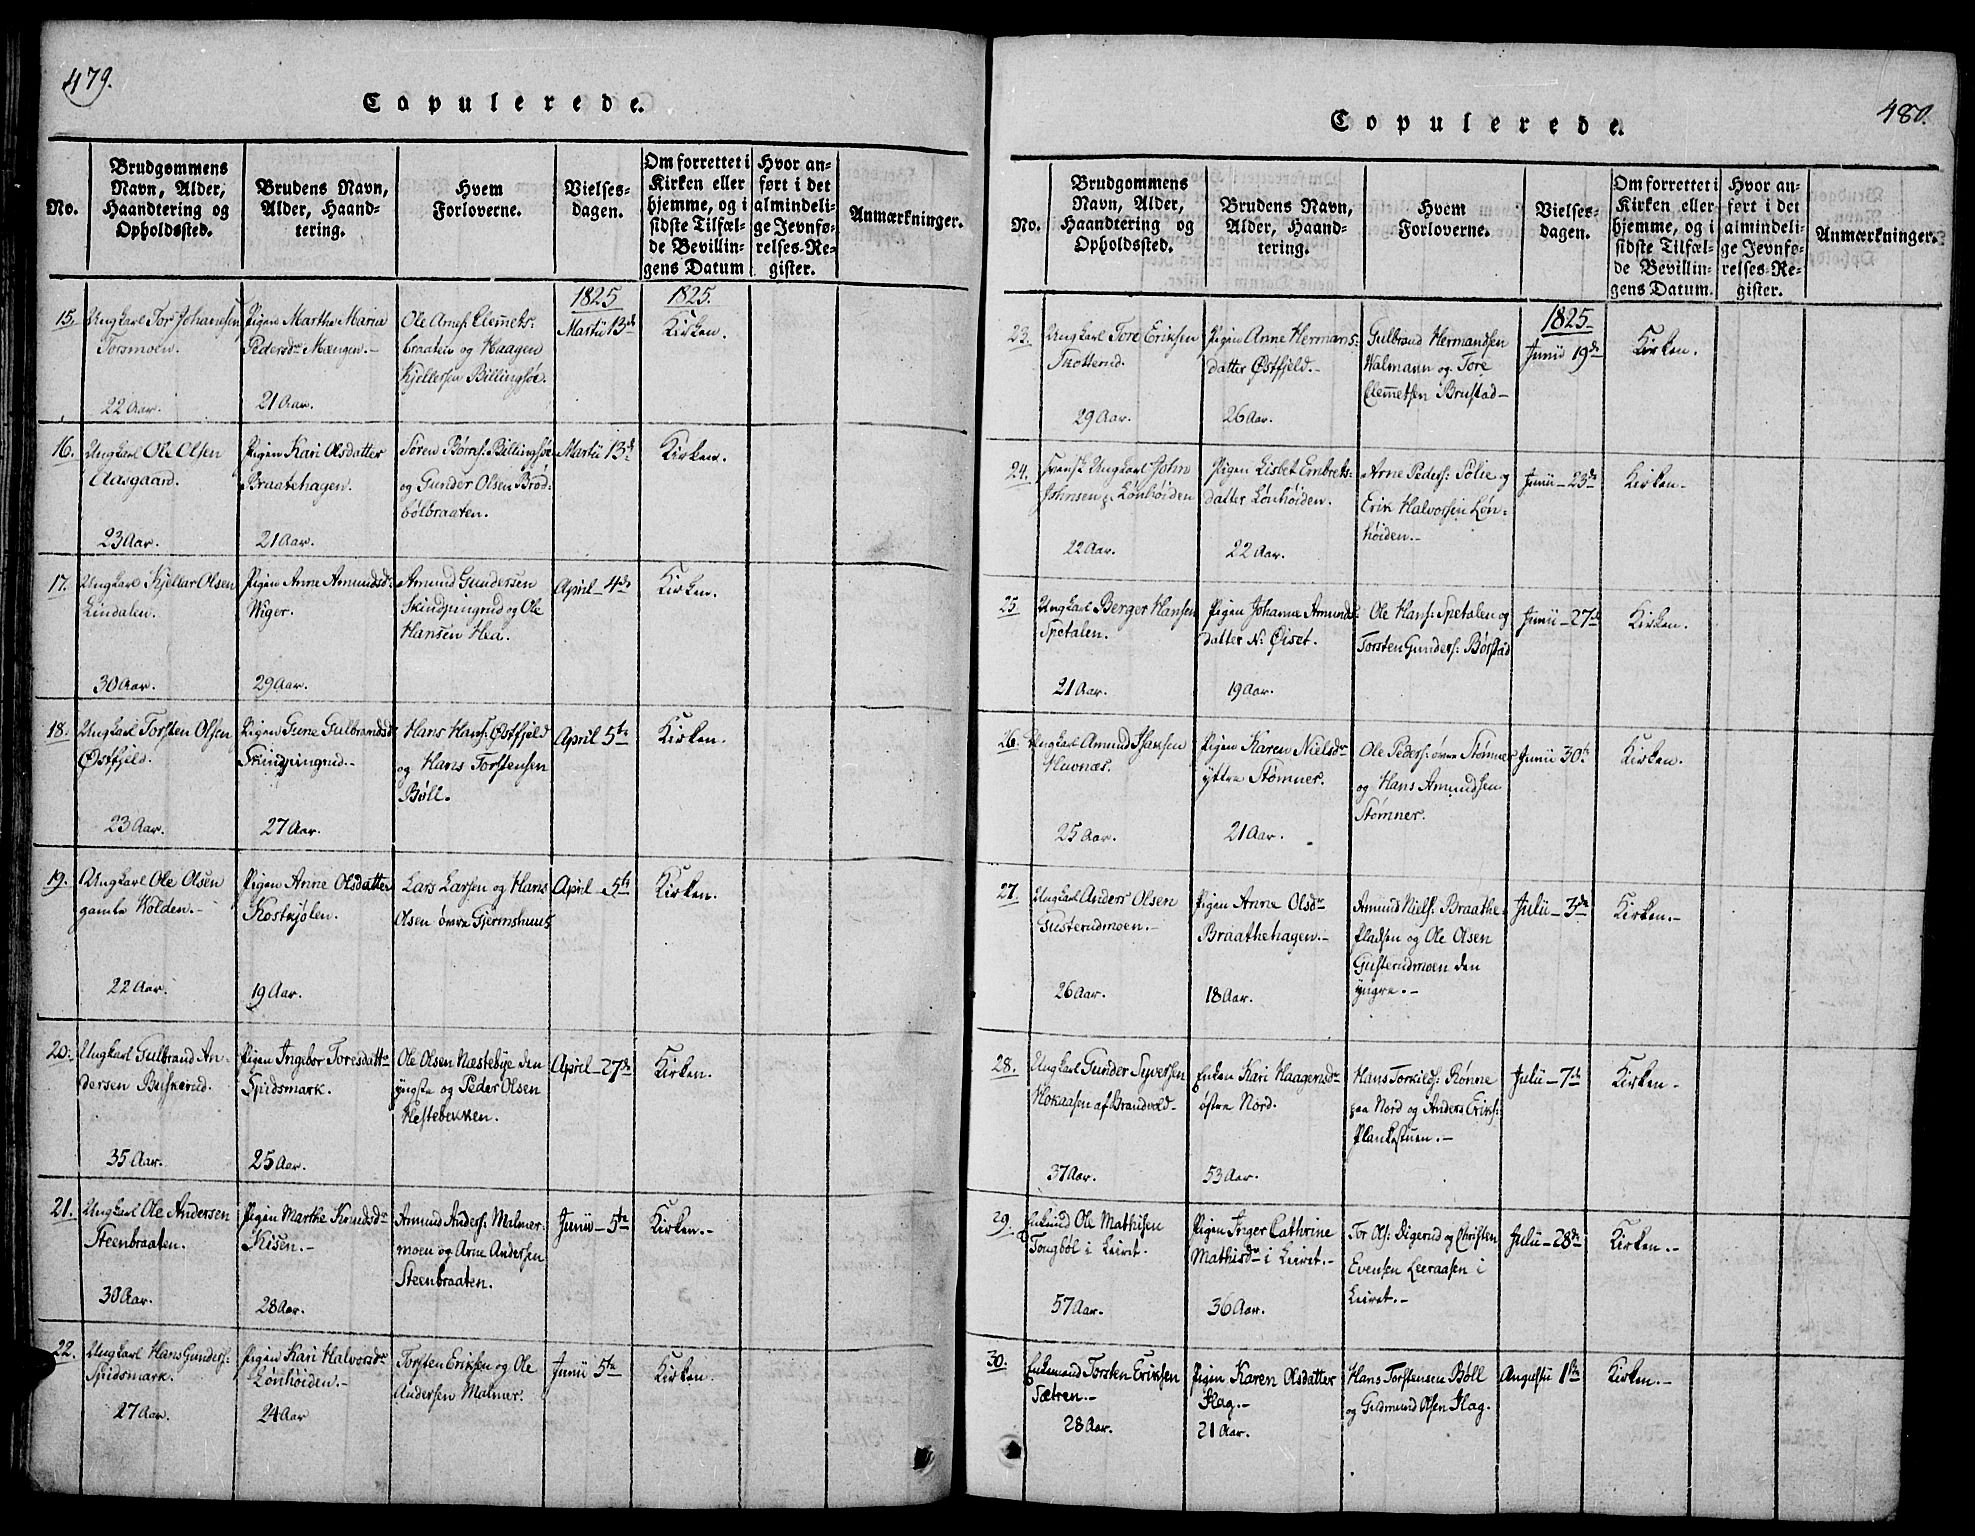 479.
Copulerede.
No.
Brudgommens
Navn, Alder,
Haandtering og
Opholdssted.
Brudens Navn,
Alder, Haand-
tering.
Hvem
Forloverne.
Vielses-
dagen.
Om forrettet i
Kirken eller
hjemme, og i
sidste Tilfæl-
de Bevillin-
gens Datum
Hvor an-
ført i det
almindeli-
ge Jevnfø-
relses-Re-
gister.
Anmærkninger.
1825
1825.
15.
Ungkarl Tor Johansen
Torsmoen.
22 Aar.
Pigen Marthe Maria
Pedersdr Mængen.-
21 Aar.
Ole Arnes: Clemets-
braaten og Haagen
Kjellersen Billingsøe.
Martii 13de
Kirken.
16.
Ungkarl Ole Olsen
Aasgaard.
23 Aar.
Pigen Kari Olsdatter
Braatehagen.
21 Aar.
Sören Børres: Billingsøe
og Gunder Olsen Brød-
bølbraaten.
Martii 13de
Kirken.
17.
Ungkarl Kjellar Olsen
Lindalen.
30 Aar.
Pigen Anne Amundsd:
Wiger.
29 Aar.
Amund Gundersen
Skindpungrud og Ole
Hansen Hea.
April-4de
Kirken.
18.
Ungkarl Torsten Olsen
Østfjeld.
23 Aar.
Pigen Gune Gulbrandsdr
Skindpungrud.-
27 Aar.
Hans Hans: Østfjeld
og Hans Torstensen
Bøll.
April 5te
Kirken.
19.
Ungkarl Ole Olsen
gamle Wolden.-
22 Aar.
Pigen Anne Olsdatter
Kostkjølen.
19 Aar.
Lars Larsen og Hans
Olsen øvre Gjermshuus
April-5te
Kirken.
20.
Ungkarl Gulbrand An-
dersen Buskerud.
35 Aar.
Pigen Ingebor Toresdattr
Spidsmark.
25 Aar.
Ole Olsen Næstebye den
yngste og Peder Olsen
Hestebekken.
April-27de
Kirken.
21.
Ungkarl Ole Andersen
Steenbraaten.
30 Aar.
Pigen Marthe Knudsdr
Kisen.-
28 Aar.
Amund Anders: Malmer-
moen og Arne Andersen
Steenbraaten.
Junii-5te
Kirken.-
22.
Ungkarl Hans Gunders:
Spidsmark.
27 Aar.
Pigen Kari Halvorsdr
Lønhøiden.-
24 Aar
Torsten Eriksen og Ole
Andersen Malmer.
Junii 5te
Kirken.
480.
Copulerede.
No.
Brudgommens
Navn, Alder,
Haandtering og
Opholdssted.
Brudens Navn,
Alder, Haand-
tering.
Hvem
Forloverne.
Vielses-
dagen.
Om forrettet i
Kirken eller
hjemme, og i
sidste Tilfæl-
de Bevillin-
gens Datum.
Hvor an-
ført i det
almindeli-
ge Jevnfø-
relses-Re-
gister.
Anmærkninger.
1825.
23.
Ungkarl Tore Eriksen
Thotterud.
29 Aar.
Pigen Anne Hermans-
datter Østfjeld.-
26 Aar.
Gulbrand Hermandsen
Walmann og Tore
Clemetsen i Brustad-
Junii 19de
Kirken.
24.
svensk Ungkarl John
Johnsen Lønhøiden
22 Aar.
Pigen Lisbet Embrets-
datter Lønhøiden.
22 Aar.
Arne Peders: Polie og
Erik Halvorsen Løn-
høiden.-
Junii-23de
Kirken.
25.
Ungkarl Berger Hansen
Spetalen.
21 Aar.
Pigen Johanne Amunds-
datter N: Øiset.
19 Aar.
Ole Hans: Spetalen og
Torsten Gunders: Børstad
Junii-27de
Kirken.
26.
Ungkarl Amund Hansen
Huvnæs.
25 Aar.
Pigen Karen Nielsdr
yttre Stømner.
21 Aar.
Ole Peders: øvre Stømner
og Hans Amundsen
Stømner.
Junii 30te
Kirken.
27.
Ungkarl Anders Olsen
Gusterudmoen.-
26 Aar.
Pigen Anne Olsdr
Braathehagen.-
18 Aar.
Amund Niels: Braathe-
pladsen og Ole Olsen
Gusterudmoen den
yngre.-
Julii-3de
Kirken.-
28.
Ungkarl Gunder Syversen
Mokaasen af Brandvold-
37 Aar.
Enken Kari Haagensdr
østre Nord.
53 Aar.
Hans Torkilds: Rønne
paa Nord og Anders Eriks:
Plankestuen.-
Julii-7de
Kirken.-
29.
Enkemd Ole Mathisen
Tongbøl i Leiret.
57 Aar.
Pigen Inger Cathrine
Mathisdr i Leiret.-
36 Aar.
Tor Ols: Digerud og Christen
Evensen Leeraasen i
Leiret.-
Julii-28de
Kirken.-
30.
Enkemand Torsten Eriksen
Sætren.-
28 Aar.
Pigen Karen Olsdatter
Slag.-
21 Aar.
Hans Torstensen Bøll
og Gudmund Olsen Slag.
Augusti 1ste
Kirken.-